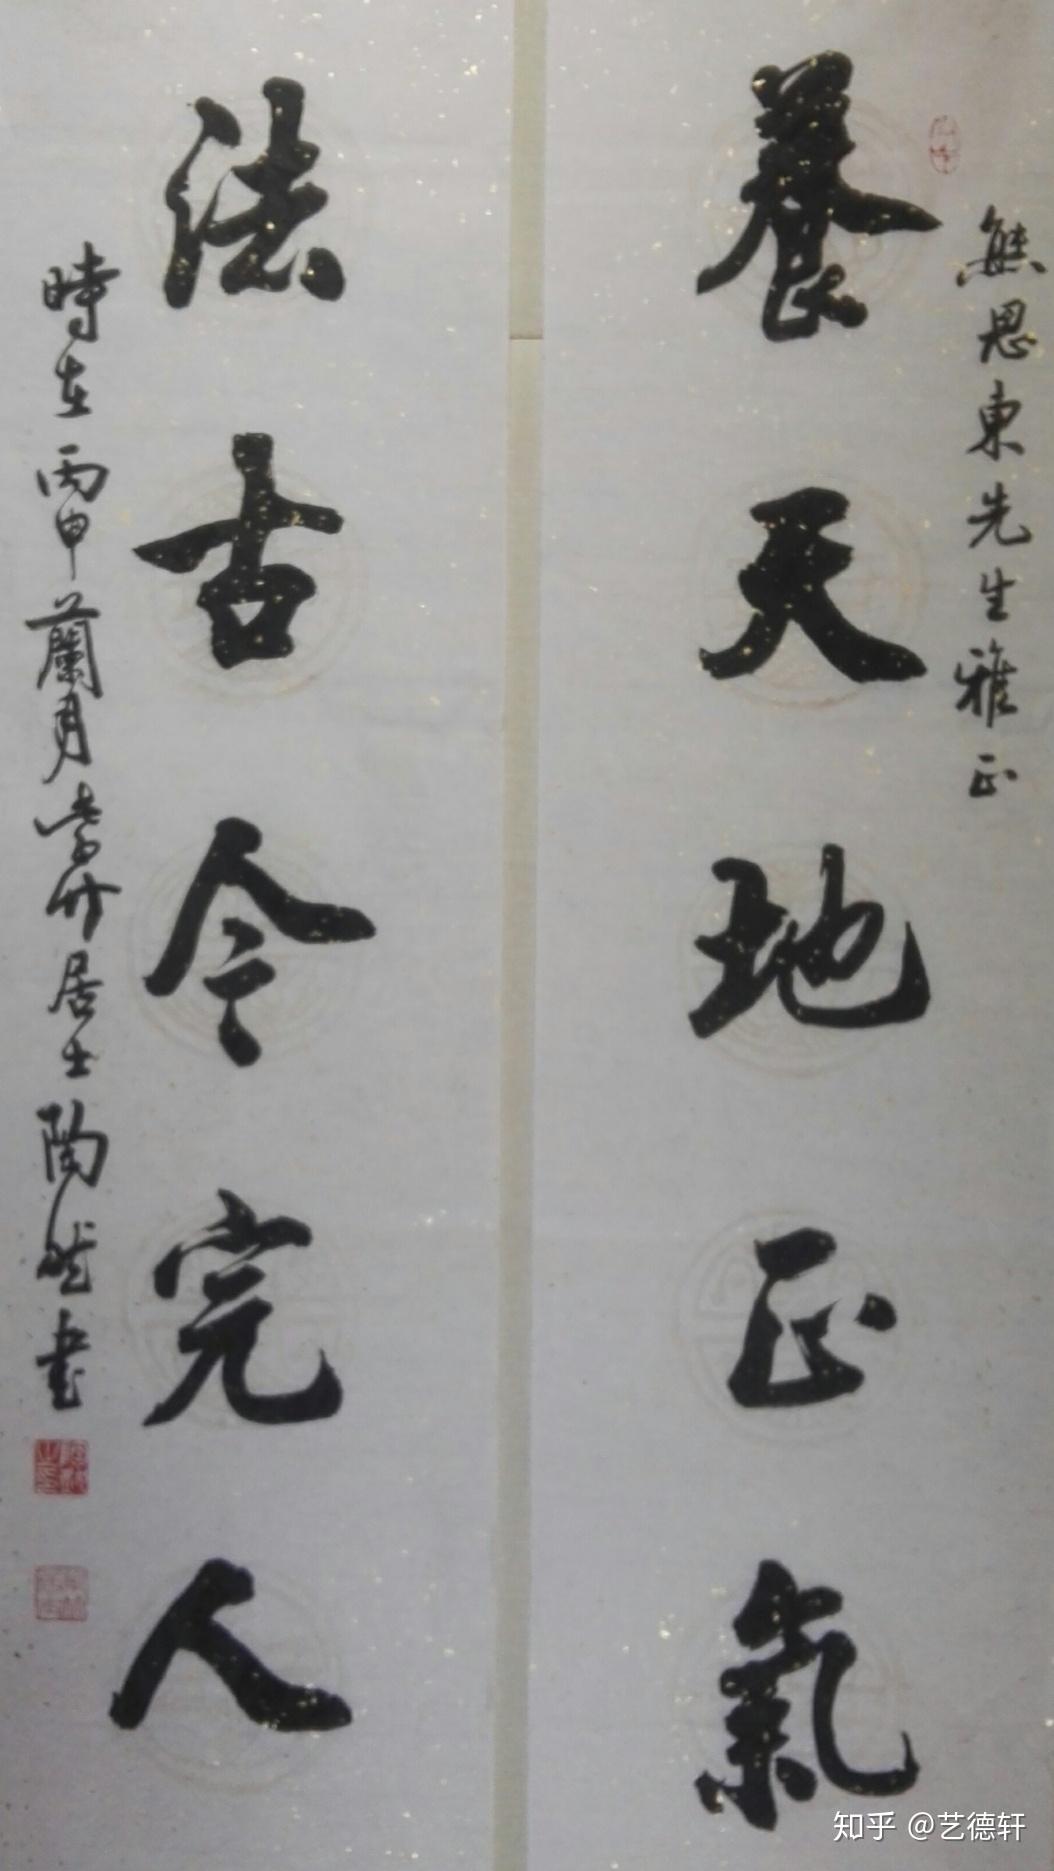 熊思東先生雅正
養天地正氣
法古今完人
時在丙申蘭月
竹居士陶然書
知乎 @艺德轩